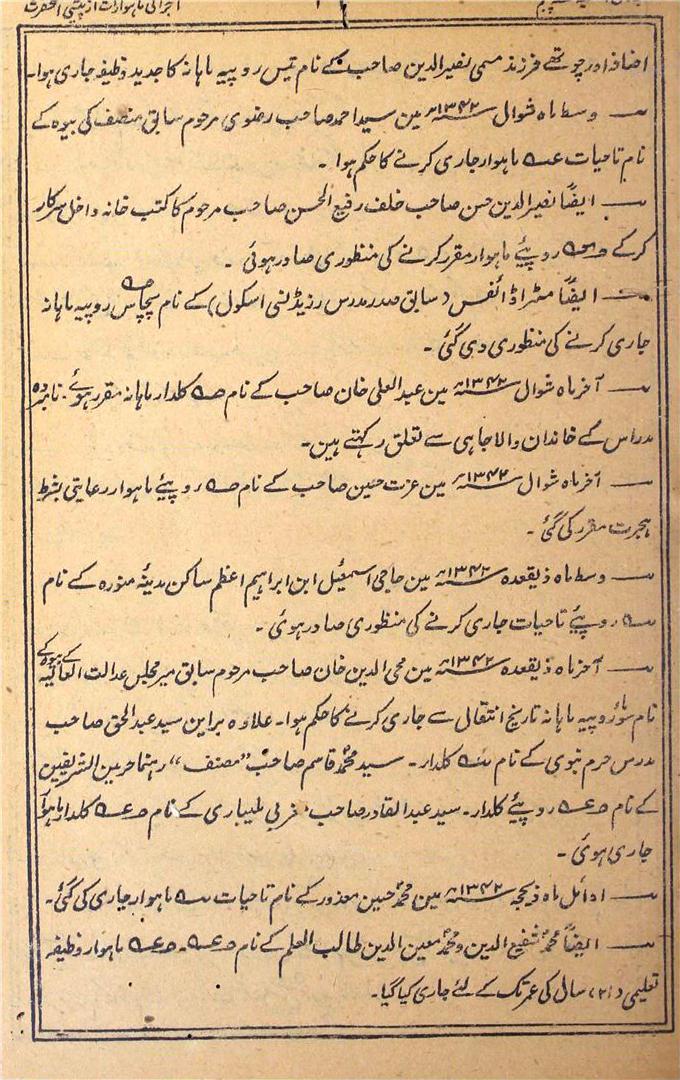 اضافہ اور چوتھے فرزند مسمی نصیر الدین صاحب کے نام تیس روپیہ ماہانہ کا جدید وظیفہ جاری ہوا۔
— وسط ماہ شوال ۱۳۴۲ھ مین سید احمد صاحب رضوی مرحوم سابق منصف کی بیوہ کے
نام تاحیات ماہوار جاری کرنے کا حکم ہوا ۔
— ایضاً نصیر الدین حسن صاحب خلف رفیع الحسن صاحب مرحوم کا کتب خانہ داخل سرکار
کرکے روپیئے ماہوار مقرر کرنے کی منظوری صادر ہوئی ۔
— ایضاً مسٹر اڈائفس (سابق صدر مدرس رزیڈنسی اسکول) کے نام پچاس روپیہ ماہانہ
جاری کرنے کی منظوری دی گئی ۔
— آخر ماہ شوال ۱۳۴۲ھ مین عبدالعلی خان صاحب کے نام کلدار ماہانہ مقرر ہوئے۔
مدراس کے خاندان والاجاہی سے تعلق رکہتے ہین۔
— آخر ماہ شوال ۱۳۴۲ھ مین عزت حسین صاحب کے نام روپیئے ماہوار رعایتی بشرط
ہجرت مقرر کی گئی ۔
— وسط ماہ ذیقعدہ ۱۳۴۲ھ مین حاجی اسمعیل ابن ابراہیم اعظم ساکن مدینۂ منورہ کے نام
روپیئے تاحیات جاری کرنے کی منظوری صادر ہوئی ۔
— آخر ماہ ذیقعدہ ۱۳۴۲ھ مین محی الدین خان صاحب مرحوم سابق میر مجلس عدالت العالیہ کے بیوہ کے
نام سو روپیہ ماہانہ تاریخ انتقال سے جاری کرنے کا حکم ہوا۔ علاوہ براین سید عبدالحق صاحب
مدرس حرم نبوی کے نام کلدار۔ سید محمد قاسم صاحب "مصنف" رہنما حرمین الشریفین
کے نام روپیئے کلدار۔ سید عبدالقادر صاحب غربی ملیباری کے نام کلدار ماہوار
جاری ہوئی ۔
— اوائل ماہ ذیحجہ ۱۳۴۲ھ مین محمد حسین معذور کے نام تاحیات ماہوار جاری کی گئی۔
— ایضاً محمد شفیع الدین و محمد معین الدین طالب العلم کے نام ماہوار وظیفہ
تعلیمی (۲۱) سال کی عمر تک کے لئے جاری کیا گیا۔